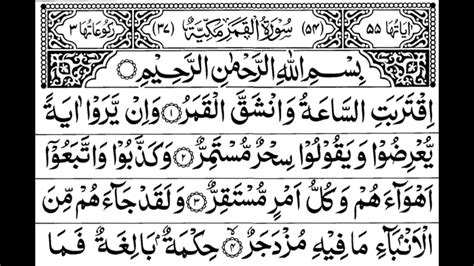 اٰيَاتُهَا ٥٥ (٥٤) سُوْرَةُ الْقَمَرِ مَكِّيَّةٌ (٣٧) رُكُوْعَاتُهَا ٣
بِسْمِ اللّٰهِ الرَّحْمٰنِ الرَّحِيْمِ
اِقْتَرَبَتِ السَّاعَةُ وَانْشَقَّ الْقَمَرُ ١ وَاِنْ يَّرَوْا اٰيَةً
يُّعْرِضُوْا وَيَقُوْلُوْا سِحْرٌ مُّسْتَمِرٌّ ٢ وَكَذَّبُوْا وَاتَّبَعُوْٓا
اَهْوَآءَهُمْ وَكُلُّ اَمْرٍ مُّسْتَقِرٌّ ٣ وَلَقَدْ جَآءَهُمْ مِّنَ
الْاَنْۢبَآءِ مَا فِيْهِ مُزْدَجَرٌ ٤ حِكْمَةٌۢ بَالِغَةٌ فَمَا